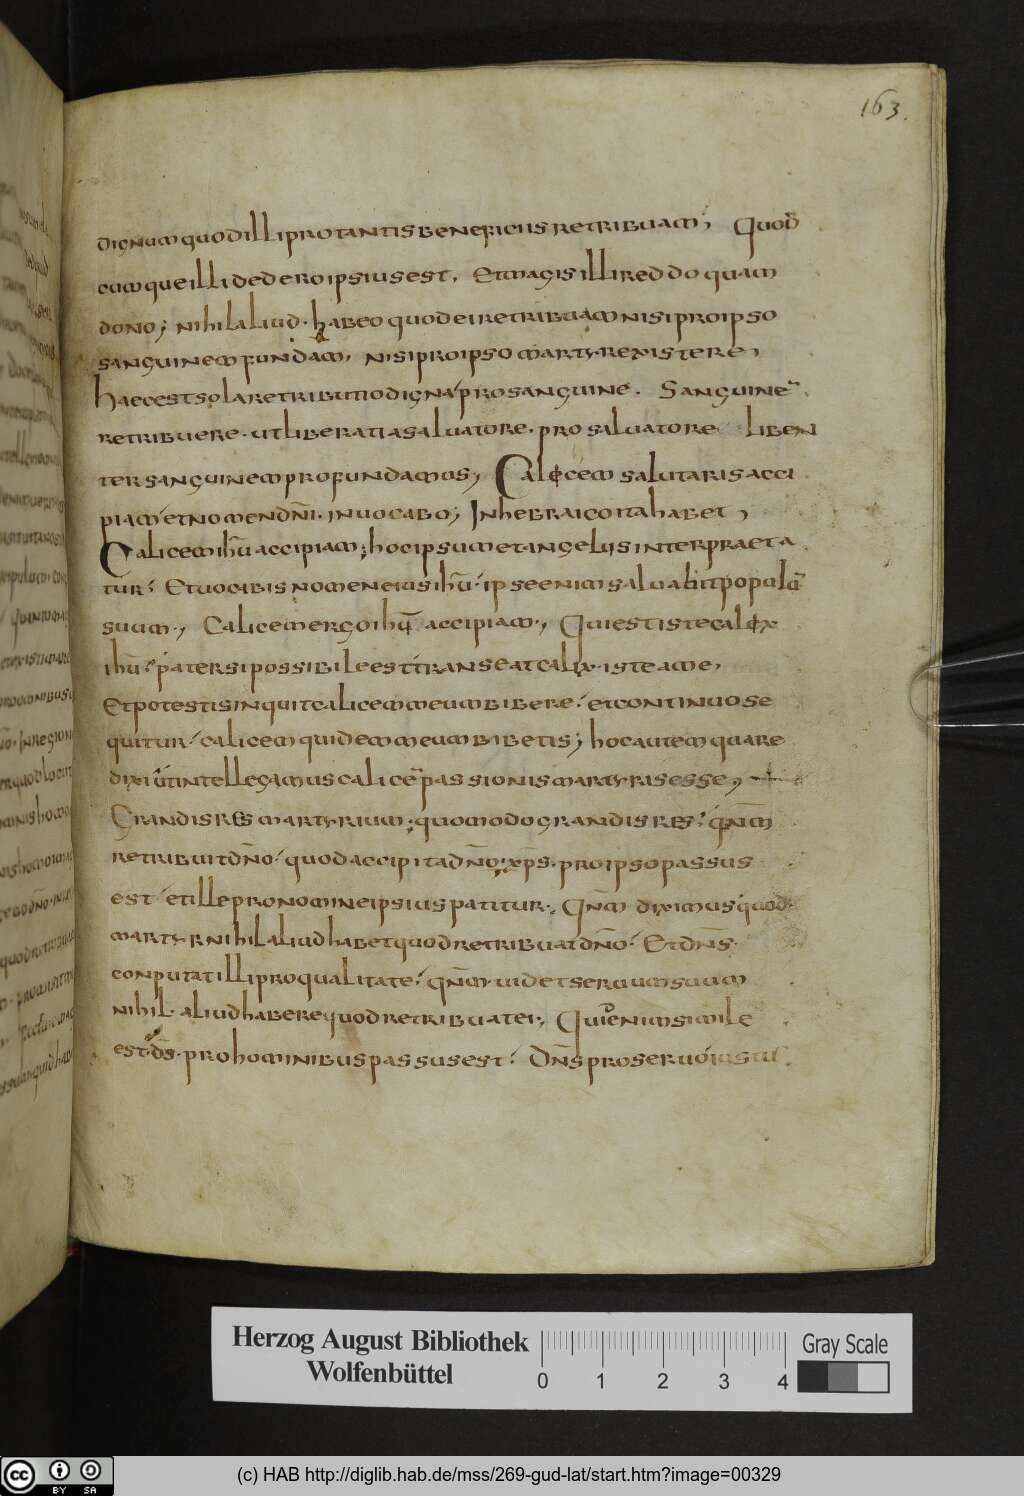 163.
dignum quod illi pro tantis beneficiis retribuam; Quod
cumque illi dedero ipsius est. Et magis illi reddo quam
dono; nihil aliud. habeo quod ei retribuam nisi pro ipso
sanguinem fundam, nisi pro ipso martyr existere;
haec est sola retributio digna pro sanguine. Sanguinē
retribuere. ut liberati a salvatore. pro salvatore liben
ter sanguinem profundamus; Calicem salutaris acci
piam et nomen dn̄i. invocabo; In hebraico ita habet,
Calicem ihū accipiam; hoc ipsum et angeliis interpraeta
tur: Et vocabis nomen eius ihū. ipse enim salvabit populū
suum., Calicem ergo ihū accipiam., Qui est iste calix
ihū? pater si possibile est transeat calix. iste a me,
Et potestis inquit calicem meum bibere? et continuo se
quitur. calicem quidem meum bibetis; hoc autem quare
dixi ut intellegamus calicē passionis martyris esse;
Grandis res martyrium. quomodo grandis res? qn̄m
retribuit dn̄o. quod accipit a dn̄o; xp̄s. pro ipso passus
est et ille pro nomine ipsius patitur. Qn̄m diximus quod
martyr nihil aliud habet quod retribuat dn̄o. Et dn̄s.
conputat illi pro qualitate. qn̄m videt servum suum
nihil. aliud habere quod retribuat ei; Quid enim simile
est. d̄s. pro hominibus passus est. Dn̄s pro servo iustus
Herzog August Bibliothek
Wolfenbüttel
0 1 2 3 4
Gray Scale
cc BY SA
(c) HAB http://diglib.hab.de/mss/269-gud-lat/start.htm?image=00329